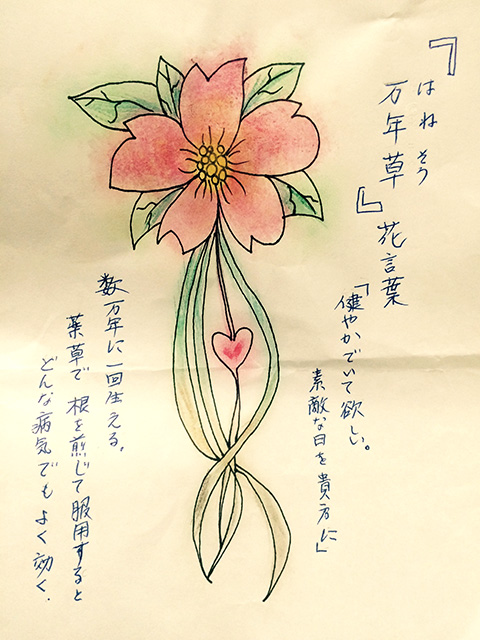 『万年草』花言葉
はねそう
「健やかでいて欲しい。
素敵な日を貴方に」
数万年に一回生える、
薬草で根を煎じて服用すると
どんな病気でもよく効く.